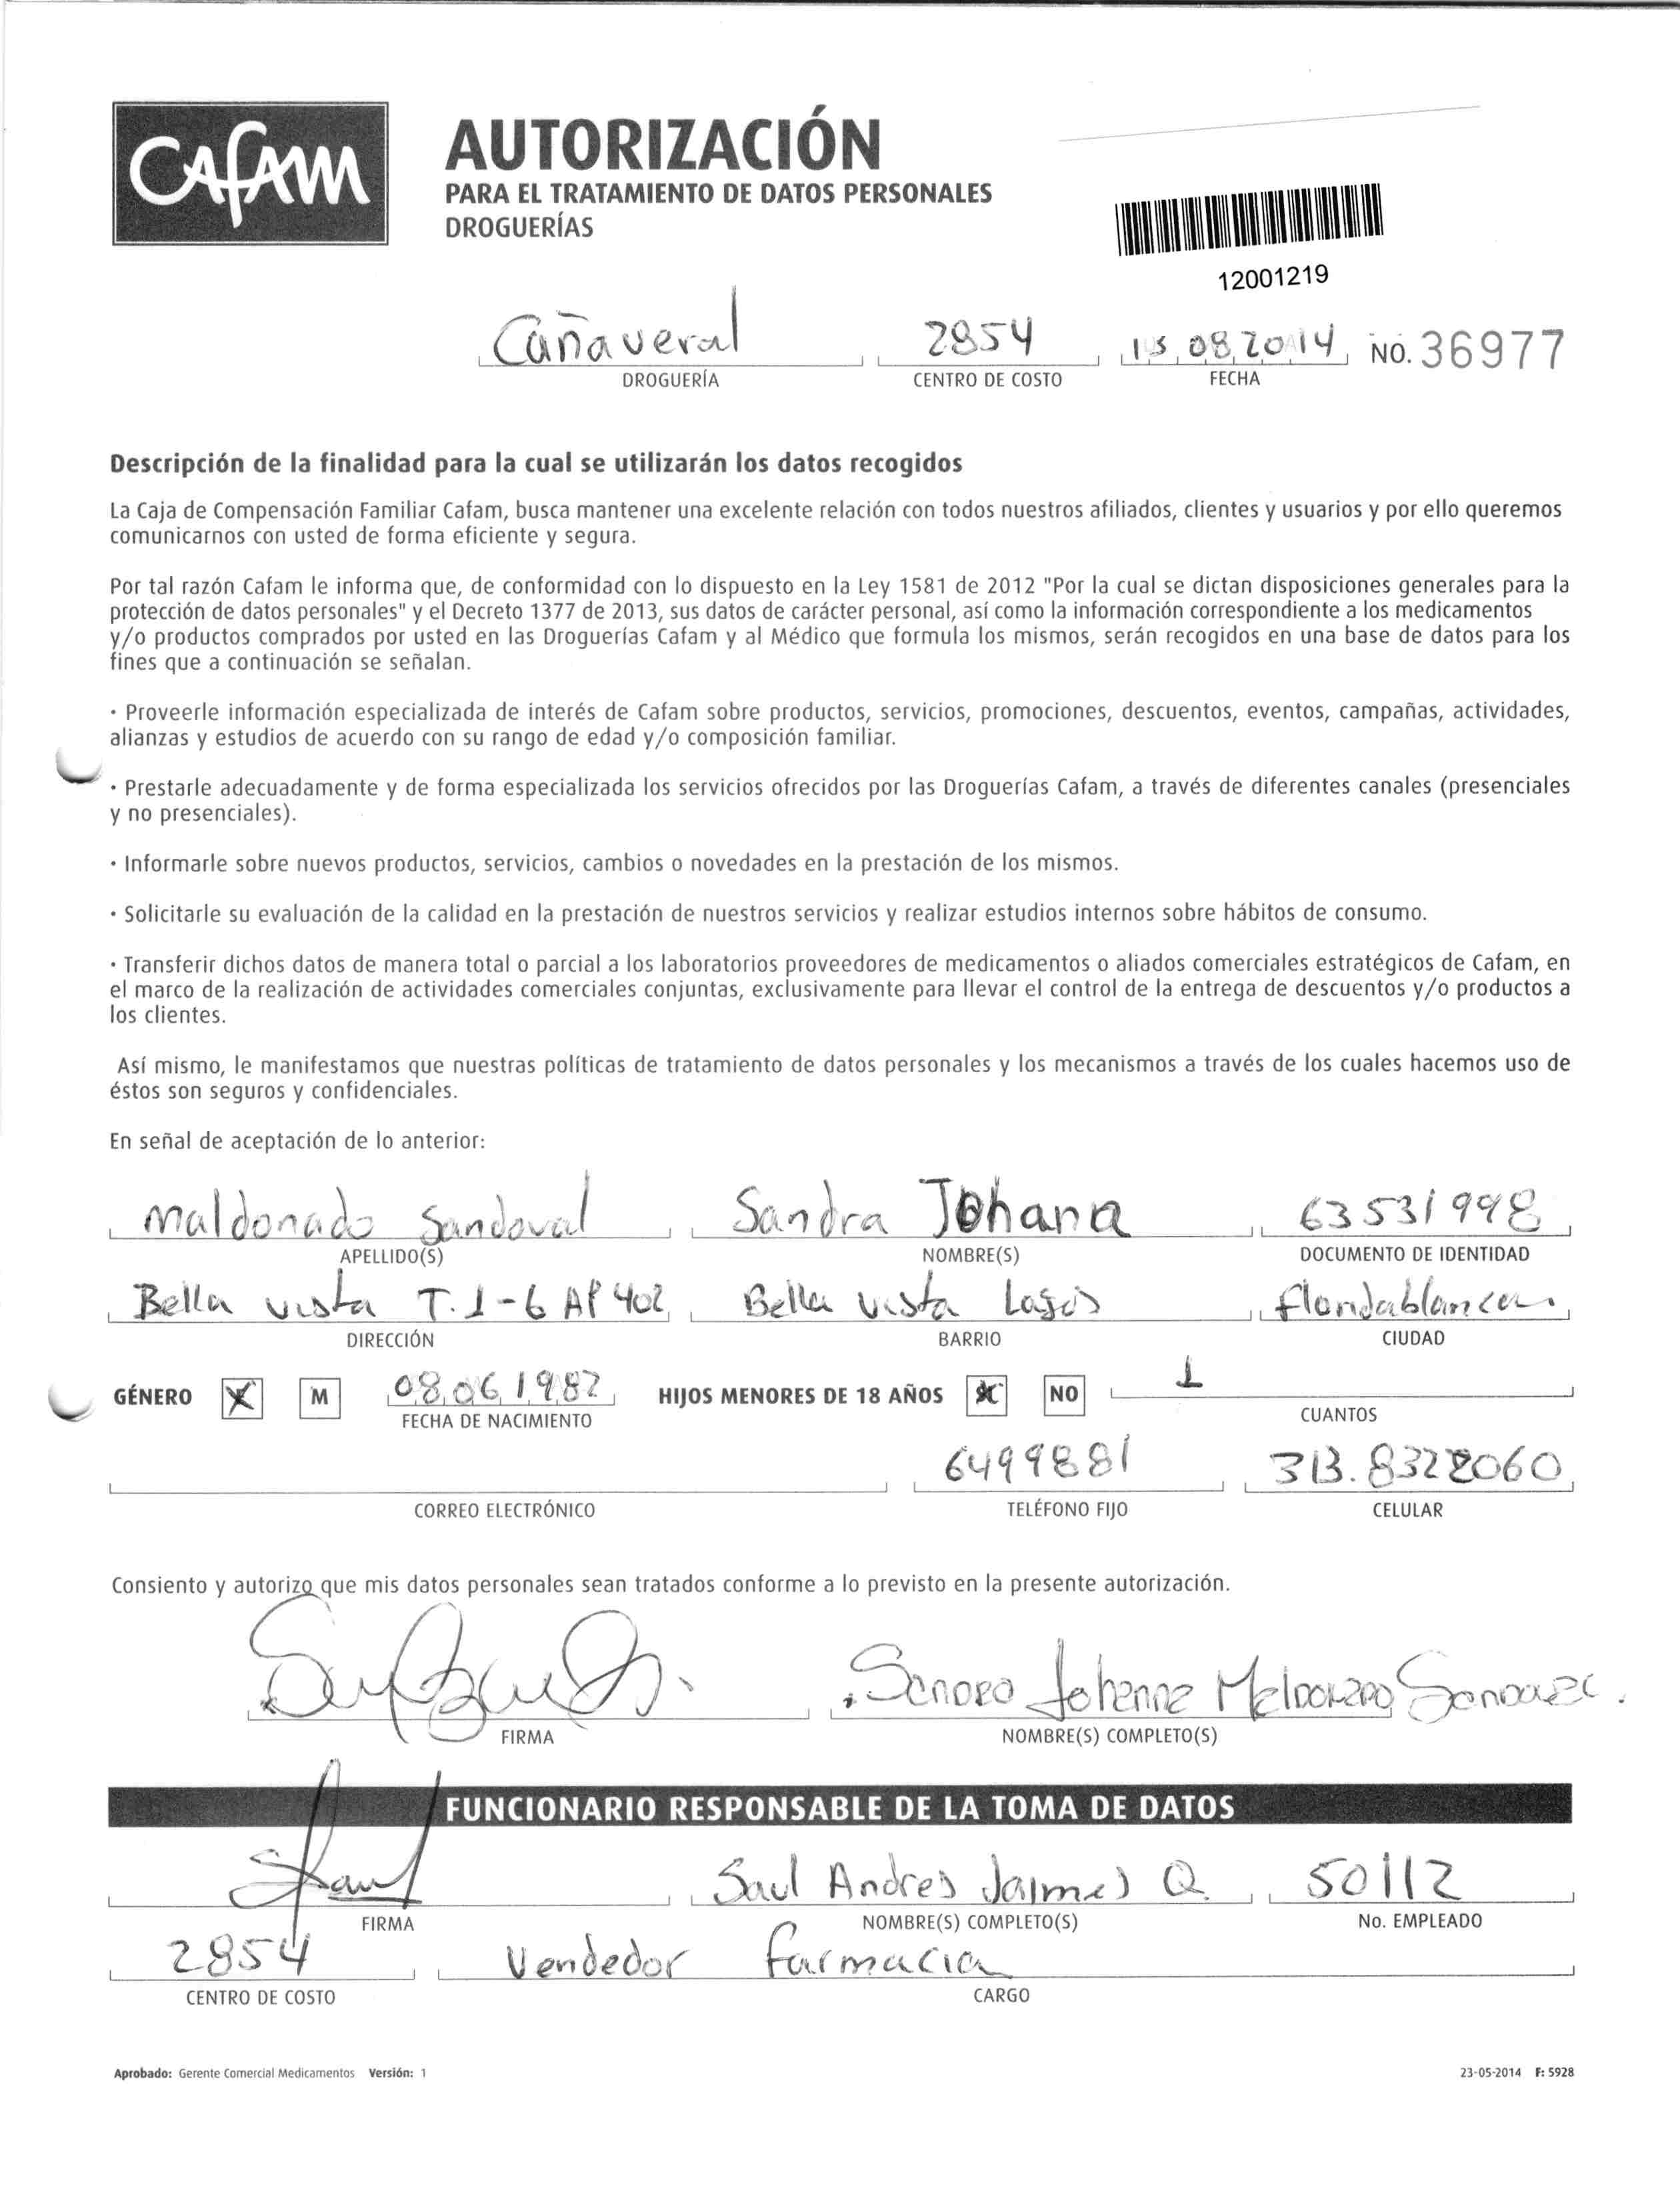 Cafam
AUTORIZACIÓN
PARA EL TRATAMIENTO DE DATOS PERSONALES
DROGUERÍAS
12001219
Cañaveral 2854 15 08 2014 NO. 36977
DROGUERÍA CENTRO DE COSTO FECHA
Descripción de la finalidad para la cual se utilizarán los datos recogidos
La Caja de Compensación Familiar Cafam, busca mantener una excelente relación con todos nuestros afiliados, clientes y usuarios y por ello queremos
comunicarnos con usted de forma eficiente y segura.
Por tal razón Cafam le informa que, de conformidad con lo dispuesto en la Ley 1581 de 2012 "Por la cual se dictan disposiciones generales para la
protección de datos personales" y el Decreto 1377 de 2013, sus datos de carácter personal, así como la información correspondiente a los medicamentos
y/o productos comprados por usted en las Droguerías Cafam y al Médico que formula los mismos, serán recogidos en una base de datos para los
fines que a continuación se señalan.
· Proveerle información especializada de interés de Cafam sobre productos, servicios, promociones, descuentos, eventos, campañas, actividades,
alianzas y estudios de acuerdo con su rango de edad y/o composición familiar.
· Prestarle adecuadamente y de forma especializada los servicios ofrecidos por las Droguerías Cafam, a través de diferentes canales (presenciales
y no presenciales).
· Informarle sobre nuevos productos, servicios, cambios o novedades en la prestación de los mismos.
· Solicitarle su evaluación de la calidad en la prestación de nuestros servicios y realizar estudios internos sobre hábitos de consumo.
· Transferir dichos datos de manera total o parcial a los laboratorios proveedores de medicamentos o aliados comerciales estratégicos de Cafam, en
el marco de la realización de actividades comerciales conjuntas, exclusivamente para llevar el control de la entrega de descuentos y/o productos a
los clientes.
Así mismo, le manifestamos que nuestras políticas de tratamiento de datos personales y los mecanismos a través de los cuales hacemos uso de
éstos son seguros y confidenciales.
En señal de aceptación de lo anterior:
Maldonado Sandoval Sandra Johana 63531998
APELLIDO(S) NOMBRE(S) DOCUMENTO DE IDENTIDAD
Bella vista T. 1-6 AP 402 Bella vista Lagos floridablanca.
DIRECCIÓN BARRIO CIUDAD
GÉNERO X M 08 06 1982 HIJOS MENORES DE 18 AÑOS X NO 1
FECHA DE NACIMIENTO CUANTOS
6499881 313.8322060
CORREO ELECTRÓNICO TELÉFONO FIJO CELULAR
Consiento y autorizo que mis datos personales sean tratados conforme a lo previsto en la presente autorización.
Sandra Johanna Maldonado Sandoval.
FIRMA NOMBRE(S) COMPLETO(S)
FUNCIONARIO RESPONSABLE DE LA TOMA DE DATOS
Saul Saul Andres Jaimes Q. 50112
FIRMA NOMBRE(S) COMPLETO(S) No. EMPLEADO
2854 Vendedor farmacia
CENTRO DE COSTO CARGO
Aprobado: Gerente Comercial Medicamentos Versión: 1 23-05-2014 F: 5928